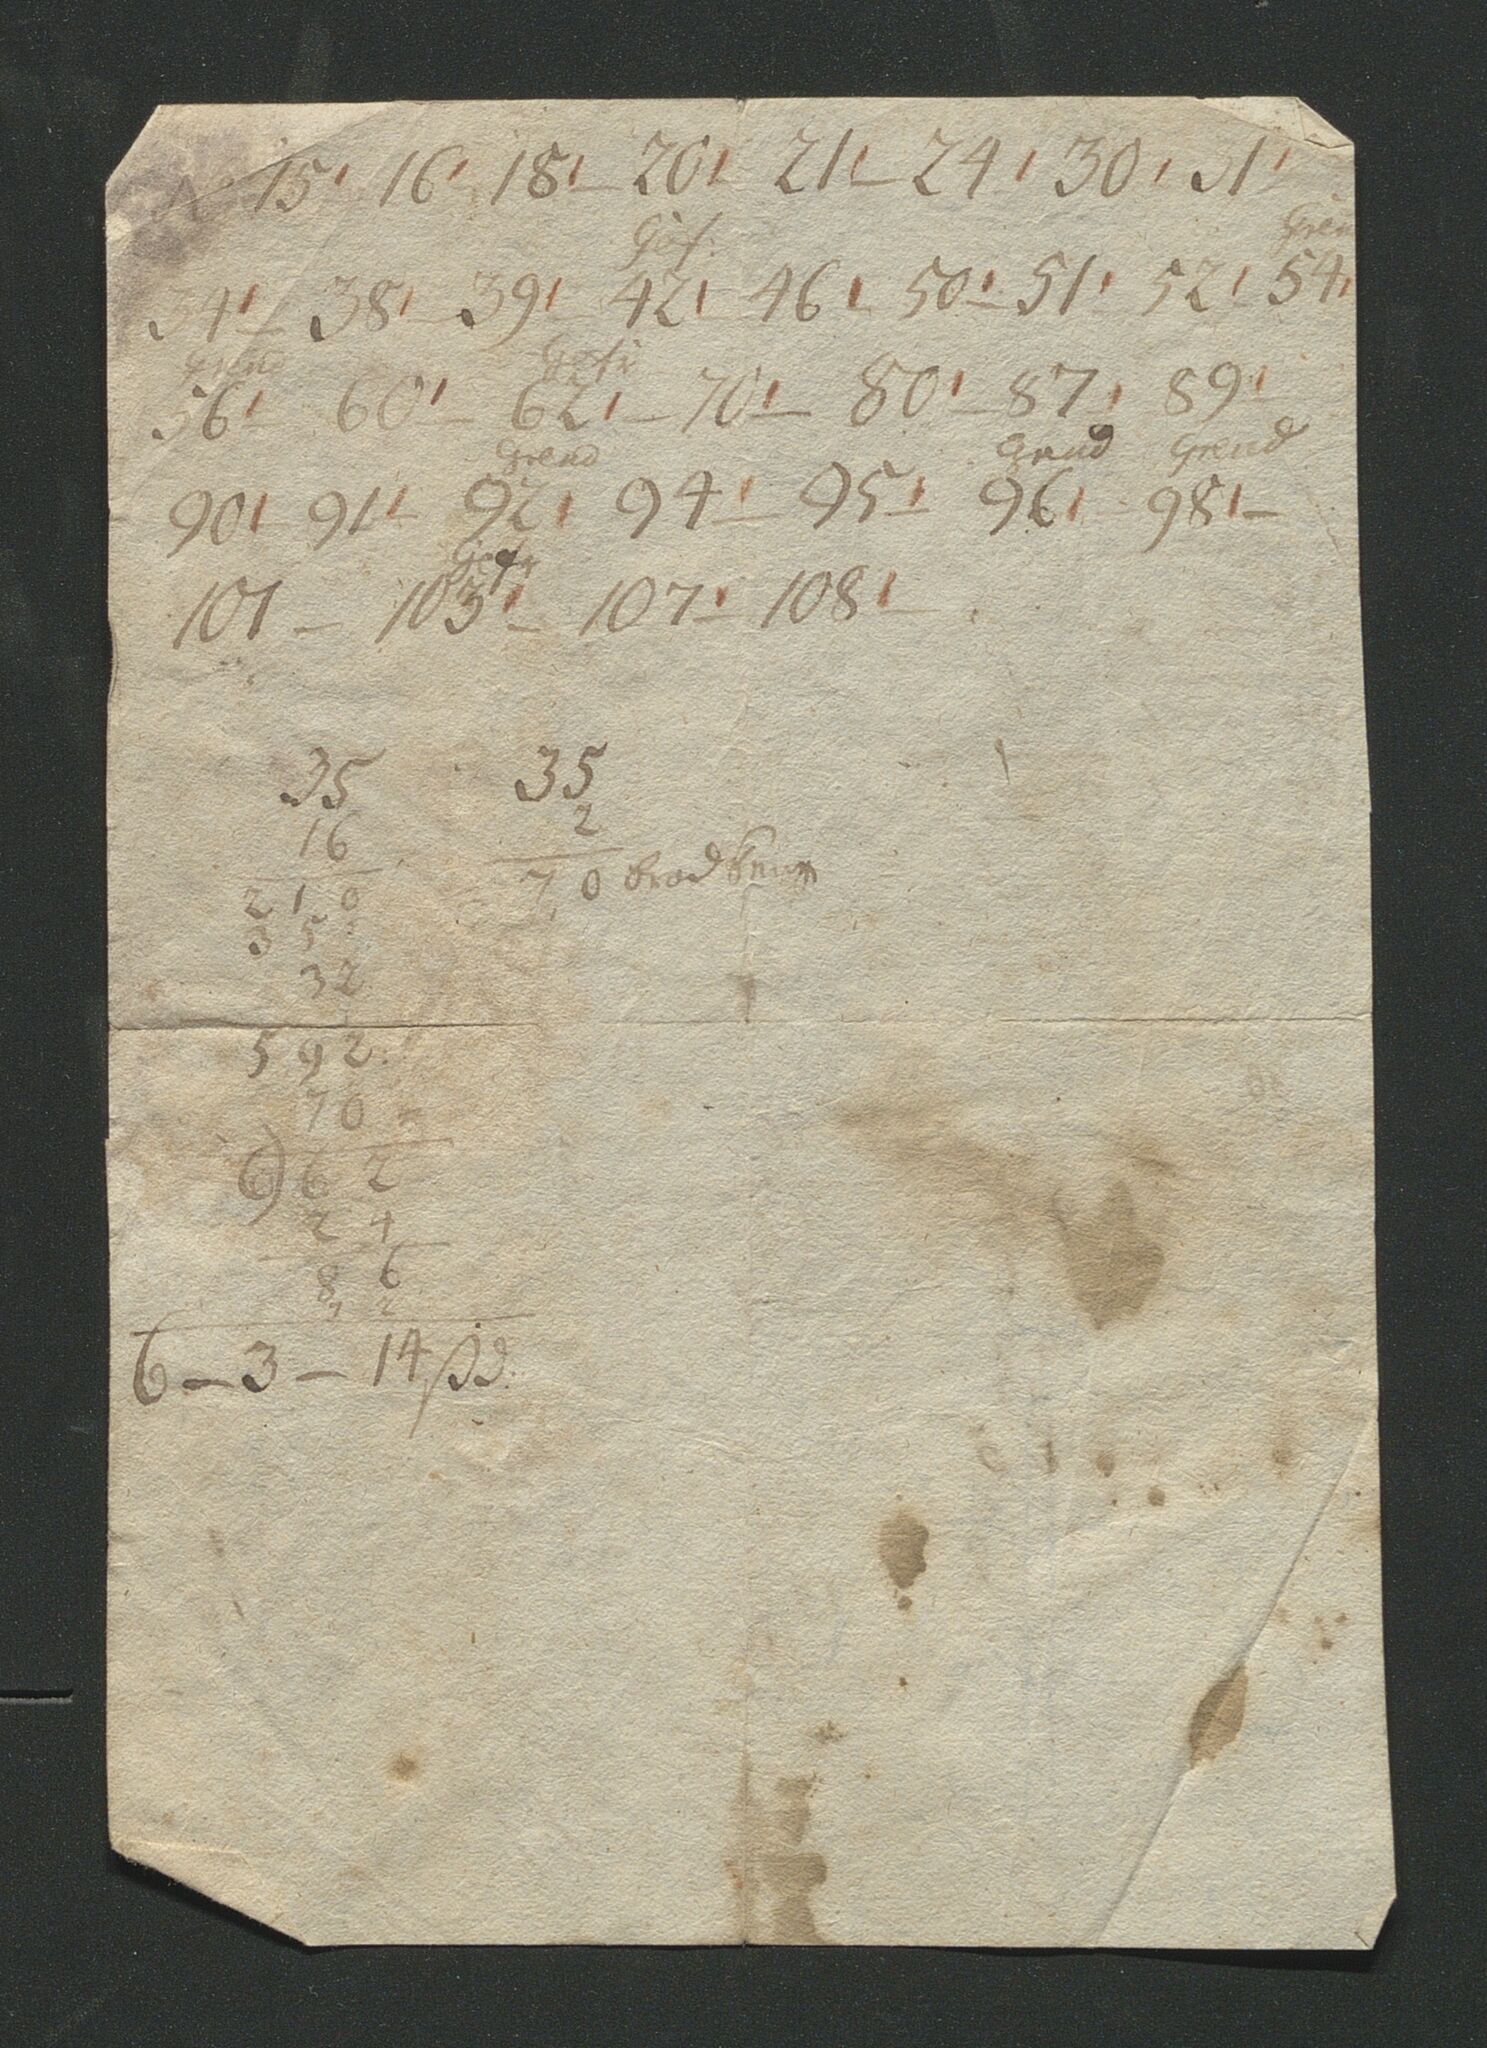 N 15 16 18 20 21 24 30 31
Gref. Gren
34 38 39 42 46 50 51 52 54
Grend
56 60 62 70 80 87 89
Grend Grend Grend
90 91 92 94 95 96 98
101 103 107 108
35 35
16 2
210 70 brod
35
32
592
70
6) 6 2
2 4
8 6
2
6 – 3 – 14